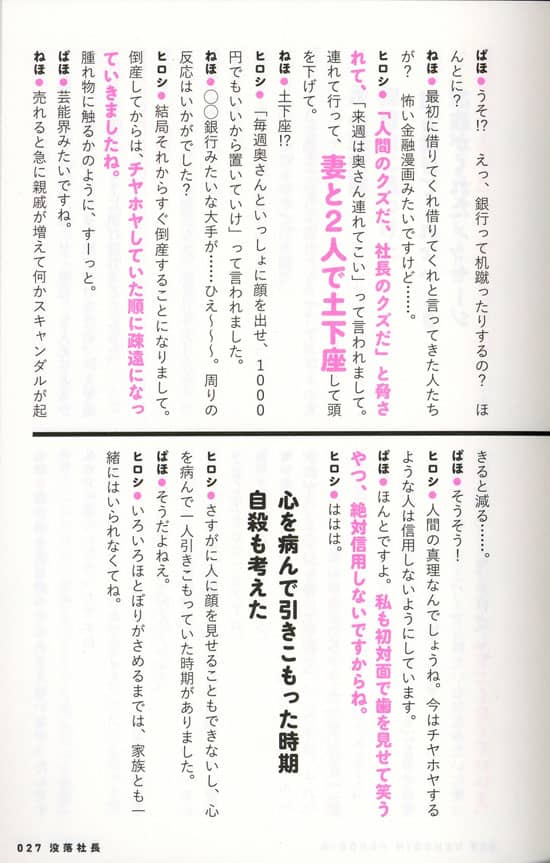 ぱほ●うそ!? えっ、銀行って机蹴ったりするの? ほ
んとに?
ねほ●最初に借りてくれ借りてくれと言ってきた人たち
が? 怖い金融漫画みたいですけど……。
ヒロシ●「人間のクズだ、社長のクズだ」と脅さ
れて、「来週は奥さん連れてこい」って言われまして。
連れて行って、妻と2人で土下座して頭
を下げて。
ねほ●土下座!?
ヒロシ●「毎週奥さんといっしょに顔を出せ、1000
円でもいいから置いていけ」って言われました。
ねほ●○○銀行みたいな大手が……ひえ〜〜〜。周りの
反応はいかがでした?
ヒロシ●結局それからすぐ倒産することになりまして。
倒産してからは、チヤホヤしていた順に疎遠になっ
ていきましたね。
腫れ物に触るかのように、すーっと。
ぱほ●芸能界みたいですね。
ねほ●売れると急に親戚が増えて何かスキャンダルが起
きると減る……。
ぱほ●そうそう!
ヒロシ●人間の真理なんでしょうね。今はチヤホヤする
ような人は信用しないようにしています。
ぱほ●ほんとですよ。私も初対面で歯を見せて笑う
やつ、絶対信用しないですからね。
ヒロシ●ははは。
心を病んで引きこもった時期
自殺も考えた
ヒロシ●さすがに人に顔を見せることもできないし、心
を病んで一人引きこもっていた時期がありました。
ぱほ●そうだよねえ。
ヒロシ●いろいろほとぼりがさめるまでは、家族とも一
緒にはいられなくてね。
027 没落社長